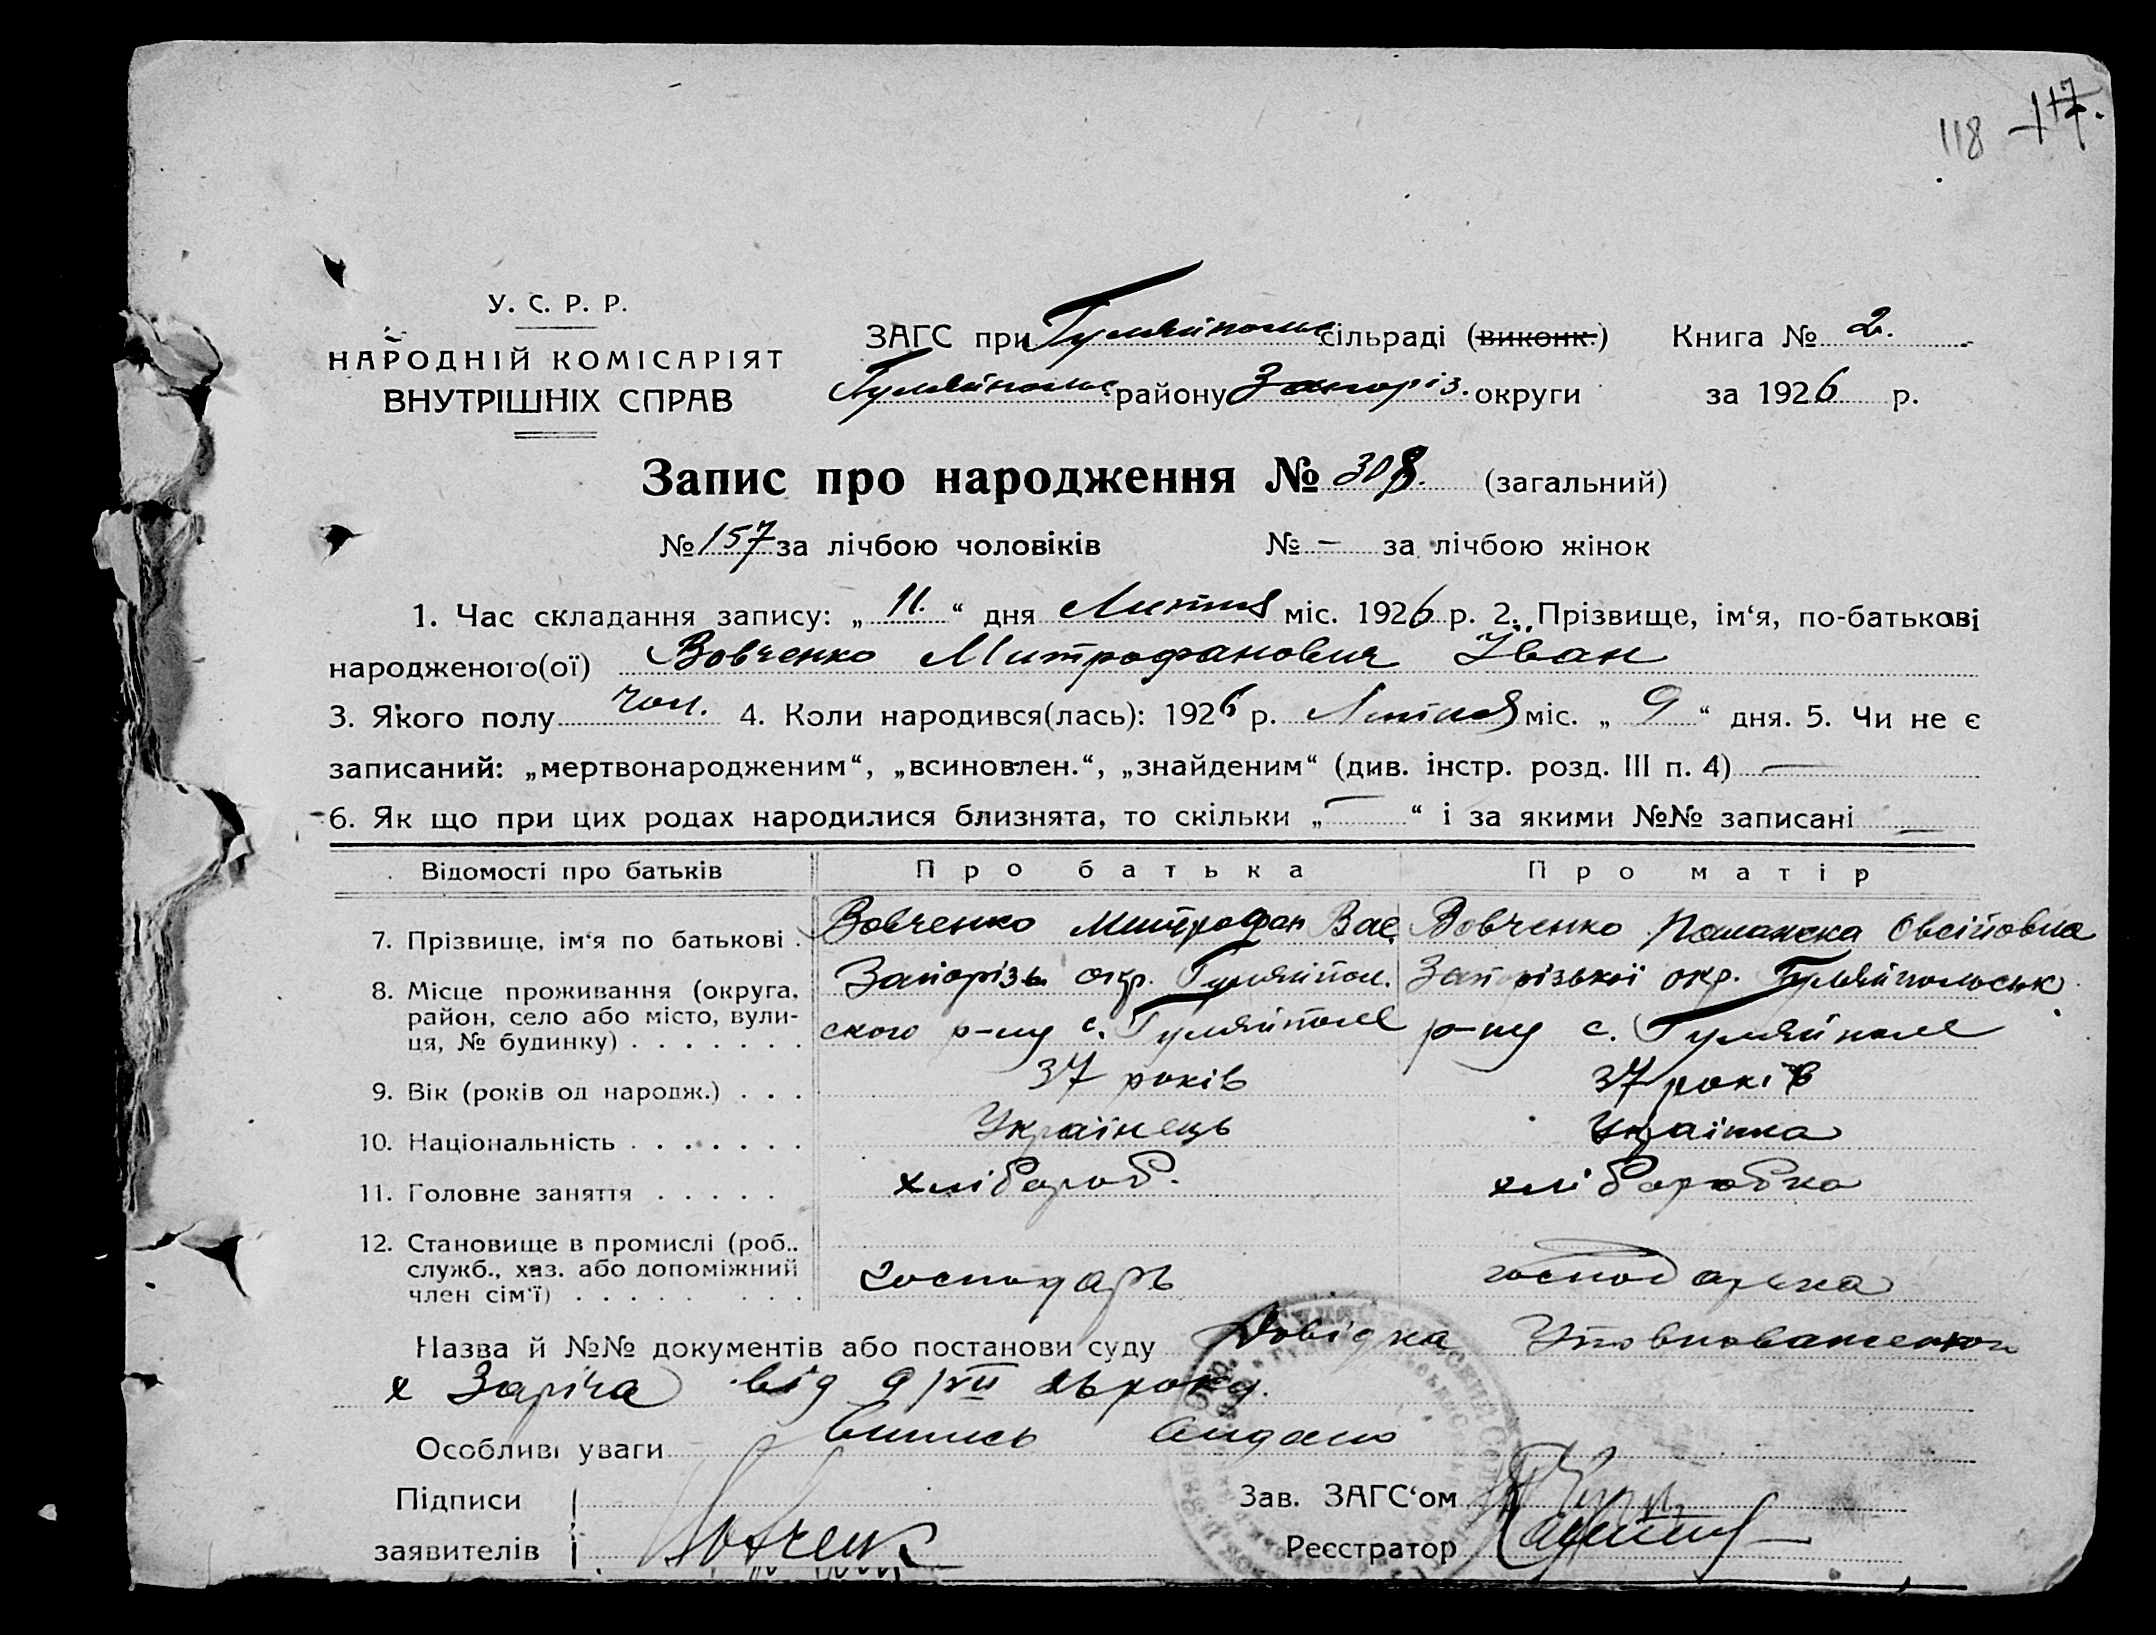 118 117.
У. С. Р. Р.
НАРОДНІЙ КОМІСАРІЯТ
ВНУТРІШНІХ СПРАВ
ЗАГС при Гуляйпольс сільраді (виконк.) Книга № 2.
Гуляйпольс. району Запоріз. округи за 1926 р.
Запис про народження № 308. (загальний)
№ 157 за лічбою чоловіків № — за лічбою жінок
1. Час складання запису: „ 11. “ дня Липня міс. 1926 р. 2. Прізвище, ім‘я, по-батькові
народженого(ої) Вовченко Митрофанович Іван
3. Якого полу чол. 4. Коли народився(лась): 1926 р. Липня міс. „ 9 “ дня. 5. Чи не є
записаний: „мертвонародженим“, „всиновлен.“, „знайденим“ (див. інстр. розд. III п. 4) —
6. Як що при цих родах народилися близнята, то скільки „ — “ і за якими №№ записані —
Відомості про батьків Про батька Про матір
7. Прізвище, ім‘я по батькові . Вовченко Митрофан Вас. Вовченко Палажка Овсійовна
8. Місце проживання (округа, район, село або місто, вулиця, № будинку) . . . . . . . Запорізь. окр. Гуляйпол. Запорізької окр. Гуляйпольськ
ского р-ну с. Гуляйполе р-ну с. Гуляйполе
9. Вік (років од народж.) . . . 37 років 37 років
10. Національність . . . . . . . Українець Українка
11. Головне заняття . . . . . хлібороб. хліборобка
12. Становище в промислі (роб.. служб., хаз. або допоміжний член сім‘ї) . . . . . . . . господарь господарька
Назва й №№ документів або постанови суду Довідка Уповноваженого
х Заріча від 9/VII 26 року.
Особливі уваги Випись видано
Підписи Зав. ЗАГС‘ом
заявителів Вовченк Реєстратор